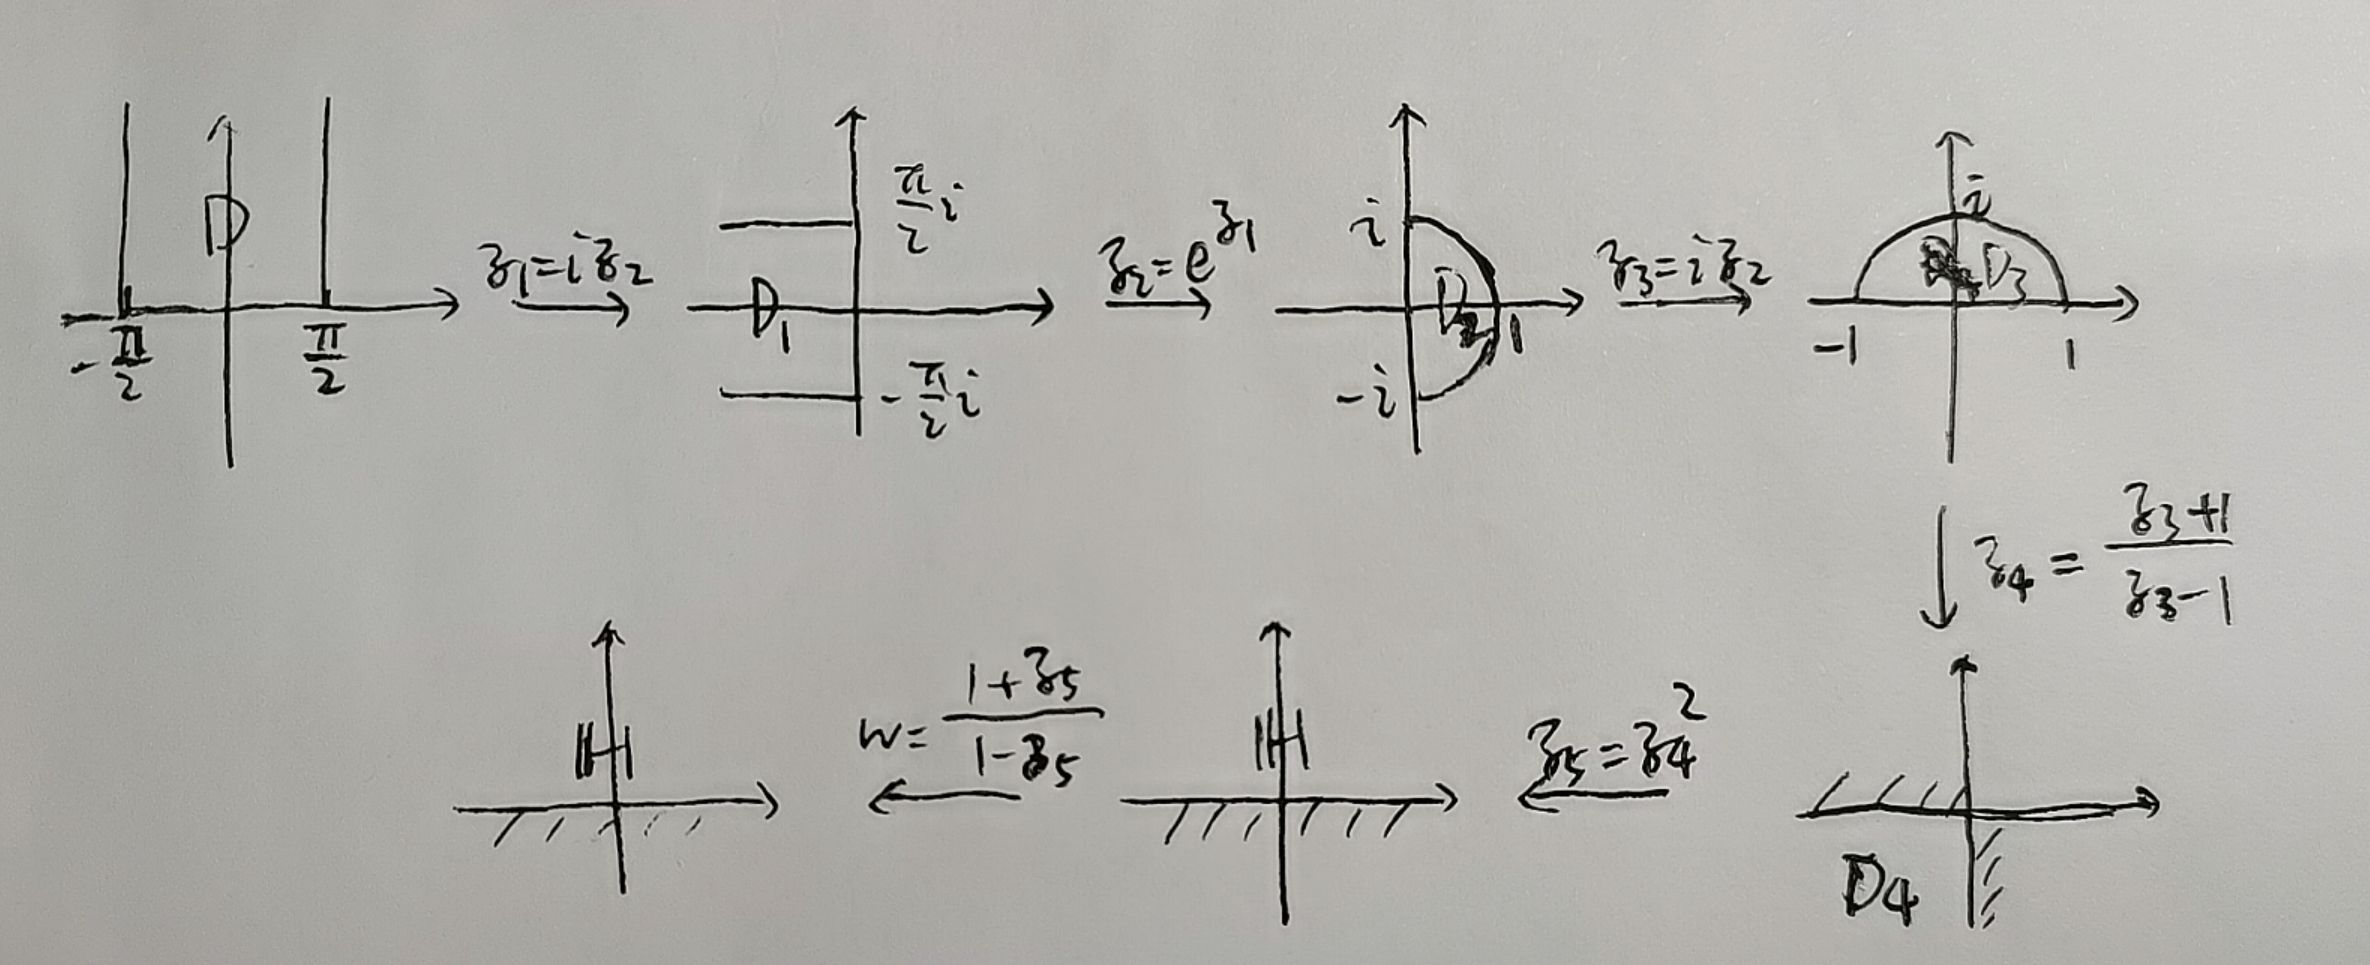 D
-π/2
π/2
z₁=iz₂
π/2 i
D₁
-π/2 i
z₂=e^z₁
i
D₂
1
-i
z₃=iz₂
i
D₃
-1
1
z₄=(z₃+1)/(z₃-1)
D₄
z₅=z₄²
ℍ
w=(1+z₅)/(1-z₅)
ℍ